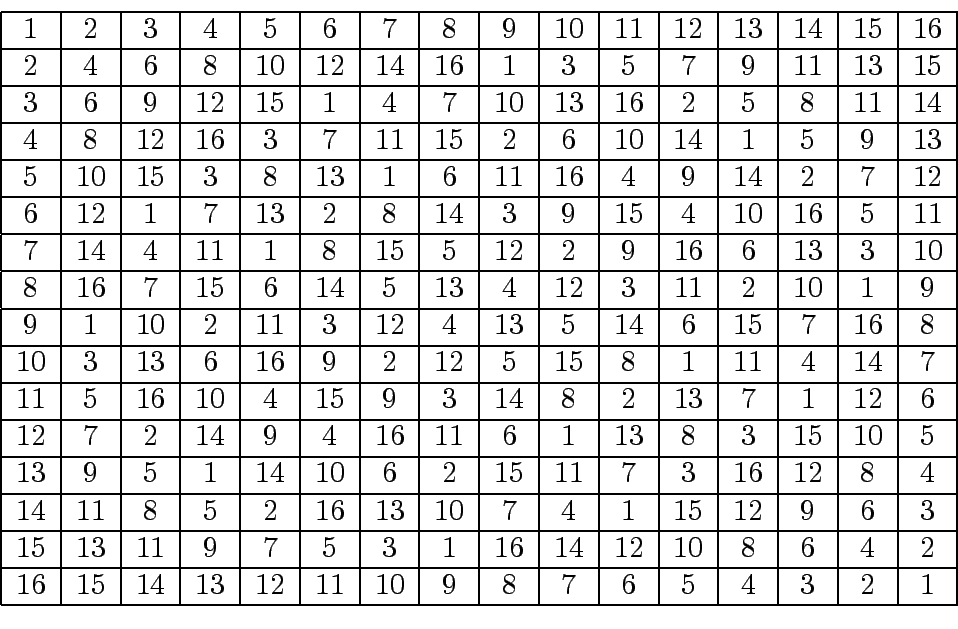 1 2 3 4 5 6 7 8 9 10 11 12 13 14 15 16
2 4 6 8 10 12 14 16 1 3 5 7 9 11 13 15
3 6 9 12 15 1 4 7 10 13 16 2 5 8 11 14
4 8 12 16 3 7 11 15 2 6 10 14 1 5 9 13
5 10 15 3 8 13 1 6 11 16 4 9 14 2 7 12
6 12 1 7 13 2 8 14 3 9 15 4 10 16 5 11
7 14 4 11 1 8 15 5 12 2 9 16 6 13 3 10
8 16 7 15 6 14 5 13 4 12 3 11 2 10 1 9
9 1 10 2 11 3 12 4 13 5 14 6 15 7 16 8
10 3 13 6 16 9 2 12 5 15 8 1 11 4 14 7
11 5 16 10 4 15 9 3 14 8 2 13 7 1 12 6
12 7 2 14 9 4 16 11 6 1 13 8 3 15 10 5
13 9 5 1 14 10 6 2 15 11 7 3 16 12 8 4
14 11 8 5 2 16 13 10 7 4 1 15 12 9 6 3
15 13 11 9 7 5 3 1 16 14 12 10 8 6 4 2
16 15 14 13 12 11 10 9 8 7 6 5 4 3 2 1